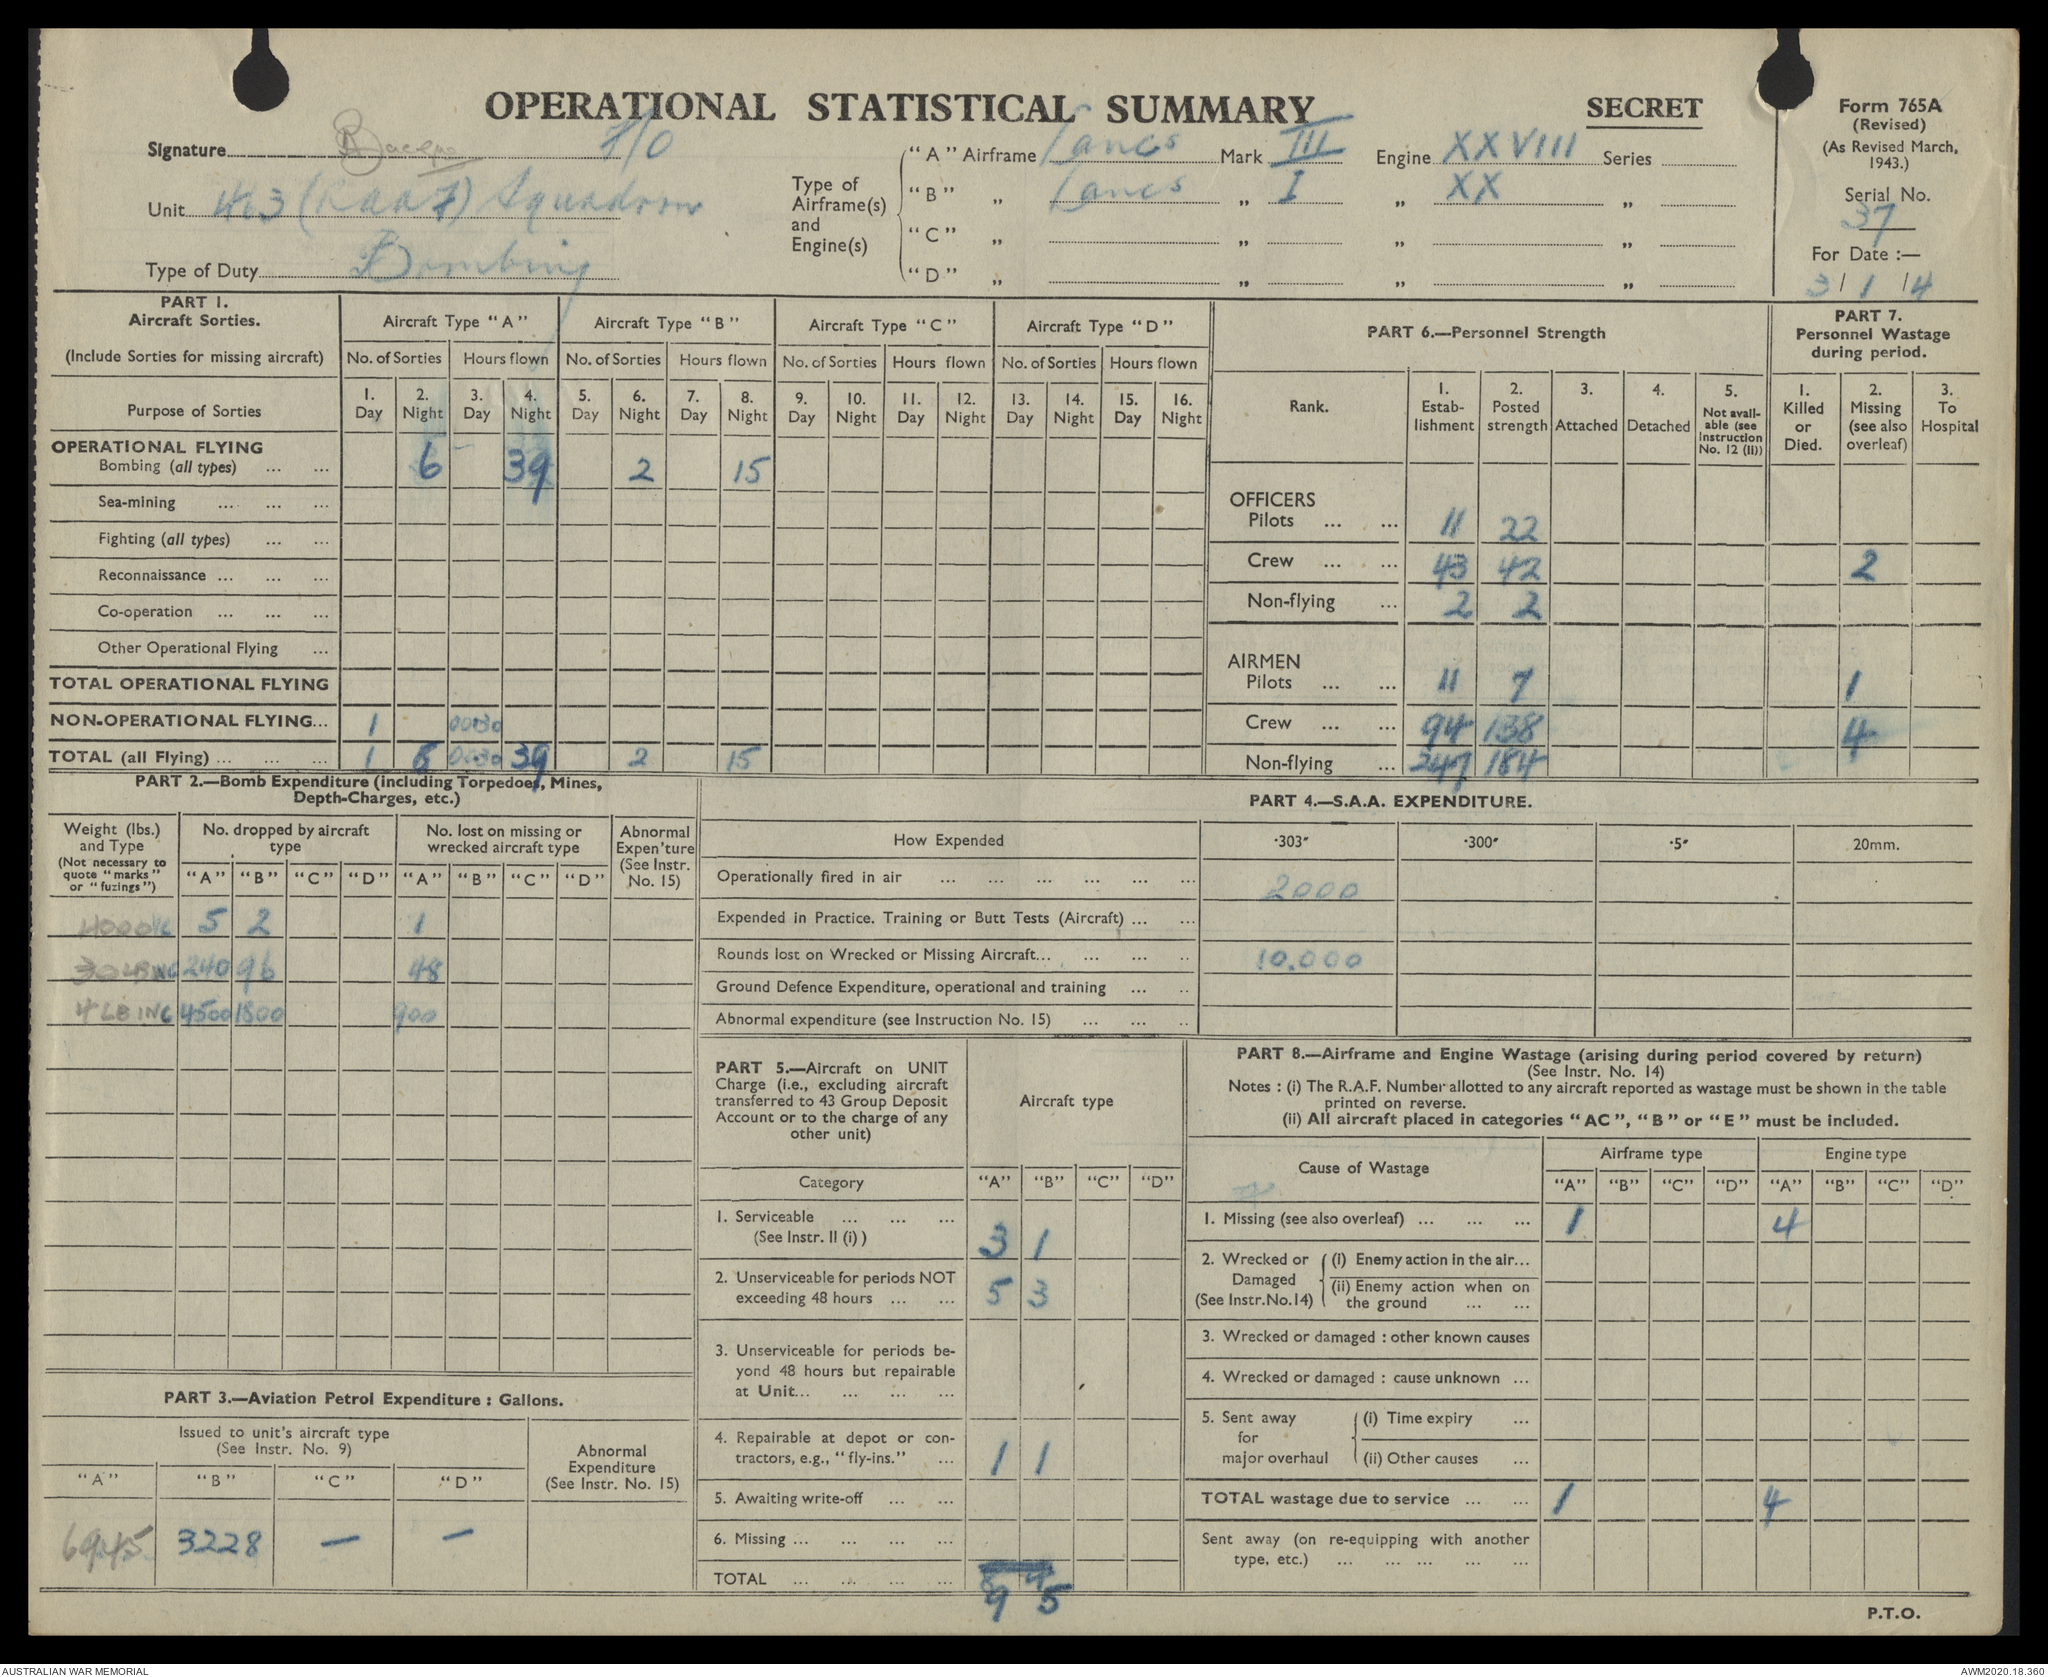 OPERATIONAL STATISTICAL SUMMARY
SECRET
Form 765A
(Revised)
(As Revised March, 1943.)
Serial No.
37
For Date :—
3/1/4
Signature F/O
Unit 463 (RAAF) Squadron
Type of Duty Bombing
Type of Airframe(s) and Engine(s)
"A" Airframe Lancs Mark III Engine XXVIII Series
"B" „ Lancs „ I „ XX „
"C" „ „ „ „
"D" „ „ „ „
PART 1.
Aircraft Sorties.
(Include Sorties for missing aircraft)
Purpose of Sorties
Aircraft Type "A" Aircraft Type "B" Aircraft Type "C" Aircraft Type "D"
No. of Sorties Hours flown No. of Sorties Hours flown No. of Sorties Hours flown No. of Sorties Hours flown
1. Day 2. Night 3. Day 4. Night 5. Day 6. Night 7. Day 8. Night 9. Day 10. Night 11. Day 12. Night 13. Day 14. Night 15. Day 16. Night
OPERATIONAL FLYING
Bombing (all types) ... ... 6 39 2 15
Sea-mining ... ... ...
Fighting (all types) ... ...
Reconnaissance ... ... ...
Co-operation ... ... ...
Other Operational Flying ...
TOTAL OPERATIONAL FLYING
NON-OPERATIONAL FLYING... 1 0030
TOTAL (all Flying) ... ... ... 1 6 0030 39 2 15
PART 6.—Personnel Strength
Rank. 1. Estab-lishment 2. Posted strength 3. Attached 4. Detached 5. Not avail-able (see Instruction No. 12 (II))
PART 7.
Personnel Wastage during period.
1. Killed or Died. 2. Missing (see also overleaf) 3. To Hospital
OFFICERS
Pilots ... ... 11 22
Crew ... ... 43 42 2
Non-flying ... 2 2
AIRMEN
Pilots ... ... 11 7 1
Crew ... ... 94 138 4
Non-flying ... 247 184
PART 2.—Bomb Expenditure (including Torpedoes, Mines,
Depth-Charges, etc.)
Weight (lbs.) and Type
(Not necessary to quote "marks" or "fuzings")
No. dropped by aircraft type
No. lost on missing or wrecked aircraft type
Abnormal Expen'ture (See Instr. No. 15)
"A" "B" "C" "D" "A" "B" "C" "D"
4000 HC 5 2 1
30 LB INC 240 96 48
4 LB INC 4500 1800 900
PART 3.—Aviation Petrol Expenditure : Gallons.
Issued to unit's aircraft type
(See Instr. No. 9)
Abnormal Expenditure
(See Instr. No. 15)
"A" "B" "C" "D"
6945 3228 — —
PART 4.—S.A.A. EXPENDITURE.
How Expended ·303″ ·300″ ·5″ 20mm.
Operationally fired in air ... ... ... ... ... ... 2000
Expended in Practice. Training or Butt Tests (Aircraft) ... ...
Rounds lost on Wrecked or Missing Aircraft... ... ... .. 10.000
Ground Defence Expenditure, operational and training ... ..
Abnormal expenditure (see Instruction No. 15) ... ... ..
PART 5.—Aircraft on UNIT
Charge (i.e., excluding aircraft
transferred to 43 Group Deposit
Account or to the charge of any
other unit)
Aircraft type
Category "A" "B" "C" "D"
1. Serviceable ... ... ...
(See Instr. II (i) ) 3 1
2. Unserviceable for periods NOT
exceeding 48 hours ... ... 5 3
3. Unserviceable for periods be-
yond 48 hours but repairable
at Unit... ... ... ...
4. Repairable at depot or con-
tractors, e.g., "fly-ins." ... 1 1
5. Awaiting write-off ... ...
6. Missing ... ... ... ...
TOTAL ... ... ... ... 9 5
PART 8.—Airframe and Engine Wastage (arising during period covered by return)
(See Instr. No. 14)
Notes : (i) The R.A.F. Number allotted to any aircraft reported as wastage must be shown in the table
printed on reverse.
(ii) All aircraft placed in categories "AC", "B" or "E" must be included.
Cause of Wastage Airframe type Engine type
"A" "B" "C" "D" "A" "B" "C" "D"
1. Missing (see also overleaf) ... ... ... 1 4
2. Wrecked or Damaged (See Instr.No.14)
(i) Enemy action in the air...
(ii) Enemy action when on
the ground ... ...
3. Wrecked or damaged : other known causes
4. Wrecked or damaged : cause unknown ...
5. Sent away for major overhaul
(i) Time expiry ...
(ii) Other causes ...
TOTAL wastage due to service ... ... 1 4
Sent away (on re-equipping with another
type, etc.) ... ... ... ... ...
P.T.O.
AUSTRALIAN WAR MEMORIAL
AWM2020.18.360